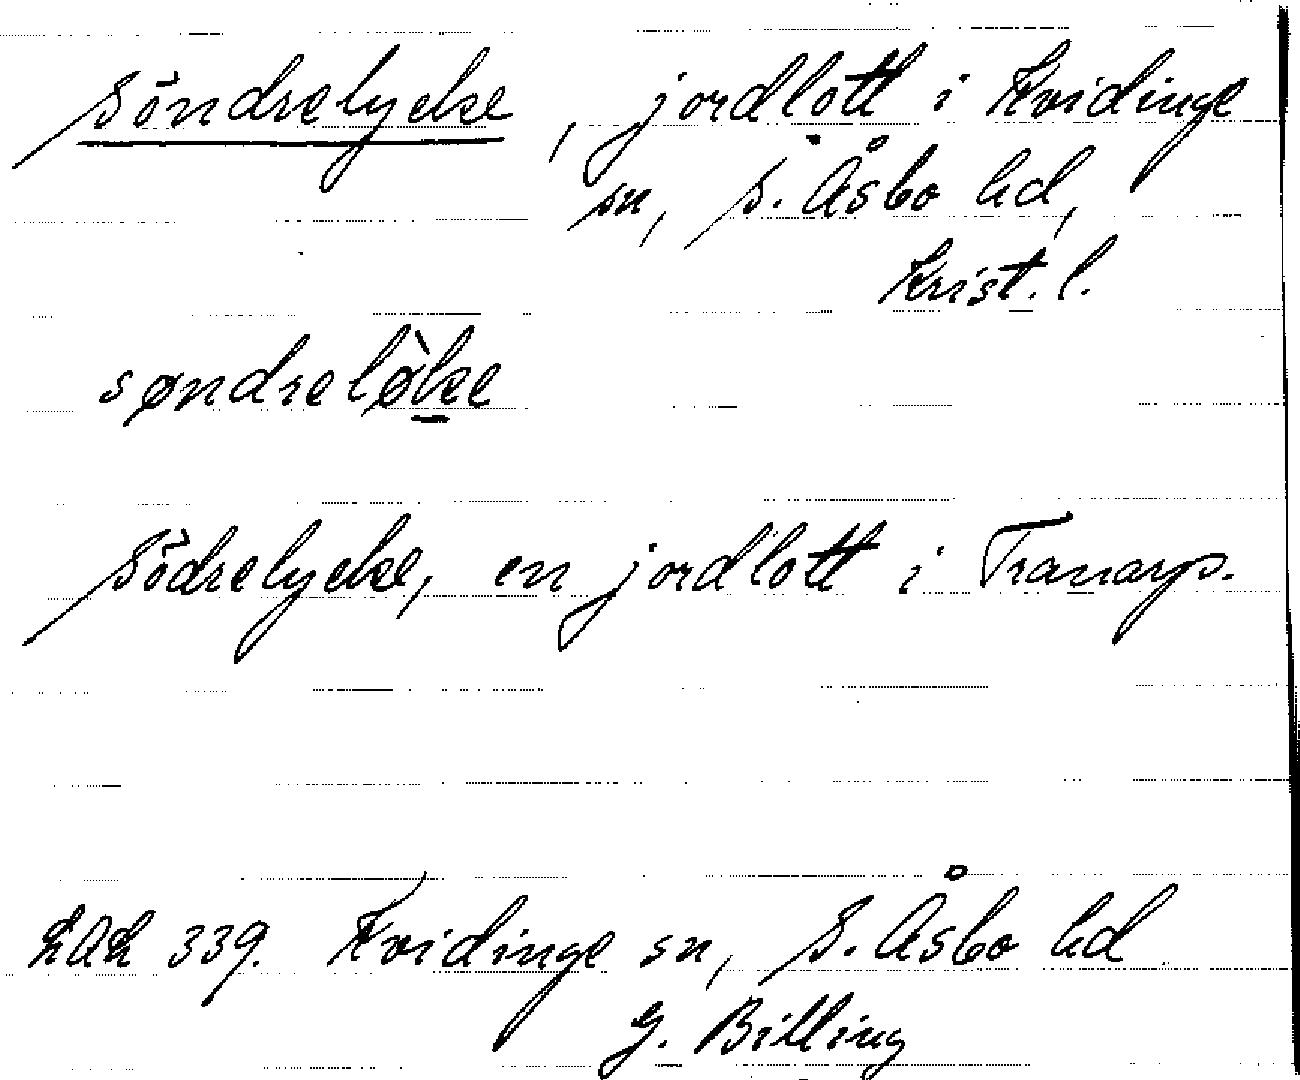 Söndrelycke, jordlott i Kvidinge
sn, S. Åsbo hd,
Krist. l.
søndrelø̀ke
Södrelycke, en jordlott i Tranarp.
LAL 339. Kvidinge sn, S. Åsbo hd
G. Billing